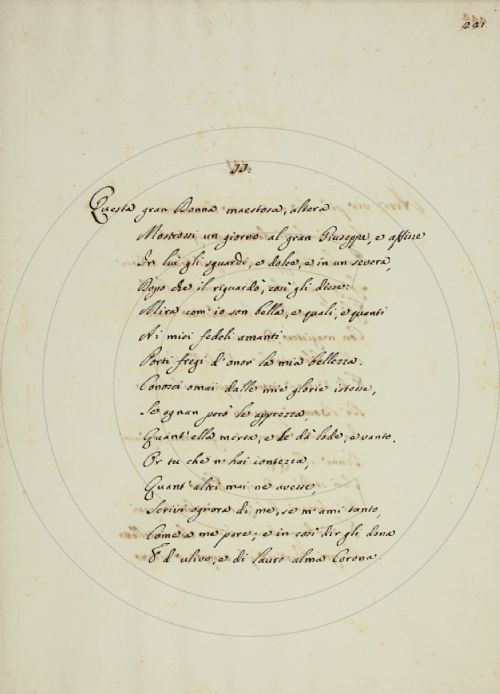 221
II.
Questa gran Donna maestosa, altera
Mostrossi un giorno al gran Giuseppe, e affisse
In lui gli sguardi, e dolce, e in un severa,
Dopo che il riguardò, così gli disse:
Mira com' io son bella, e quali, e quanti
Ai miei fedeli amanti
Porti fregi d'onor la mia bellezza.
Conosci omai dalle mie glorie istesse,
Se ognun però le apprezza,
Quant' ella merta, e le dà lode, e vanto.
Or tu che n' hai contezza,
Quant' altri mai ne avesse,
Scrivi ognora di me, se m' ami tanto,
Come a me pare; e in così dir gli dona
E d' ulivo, e di lauro alma Corona.